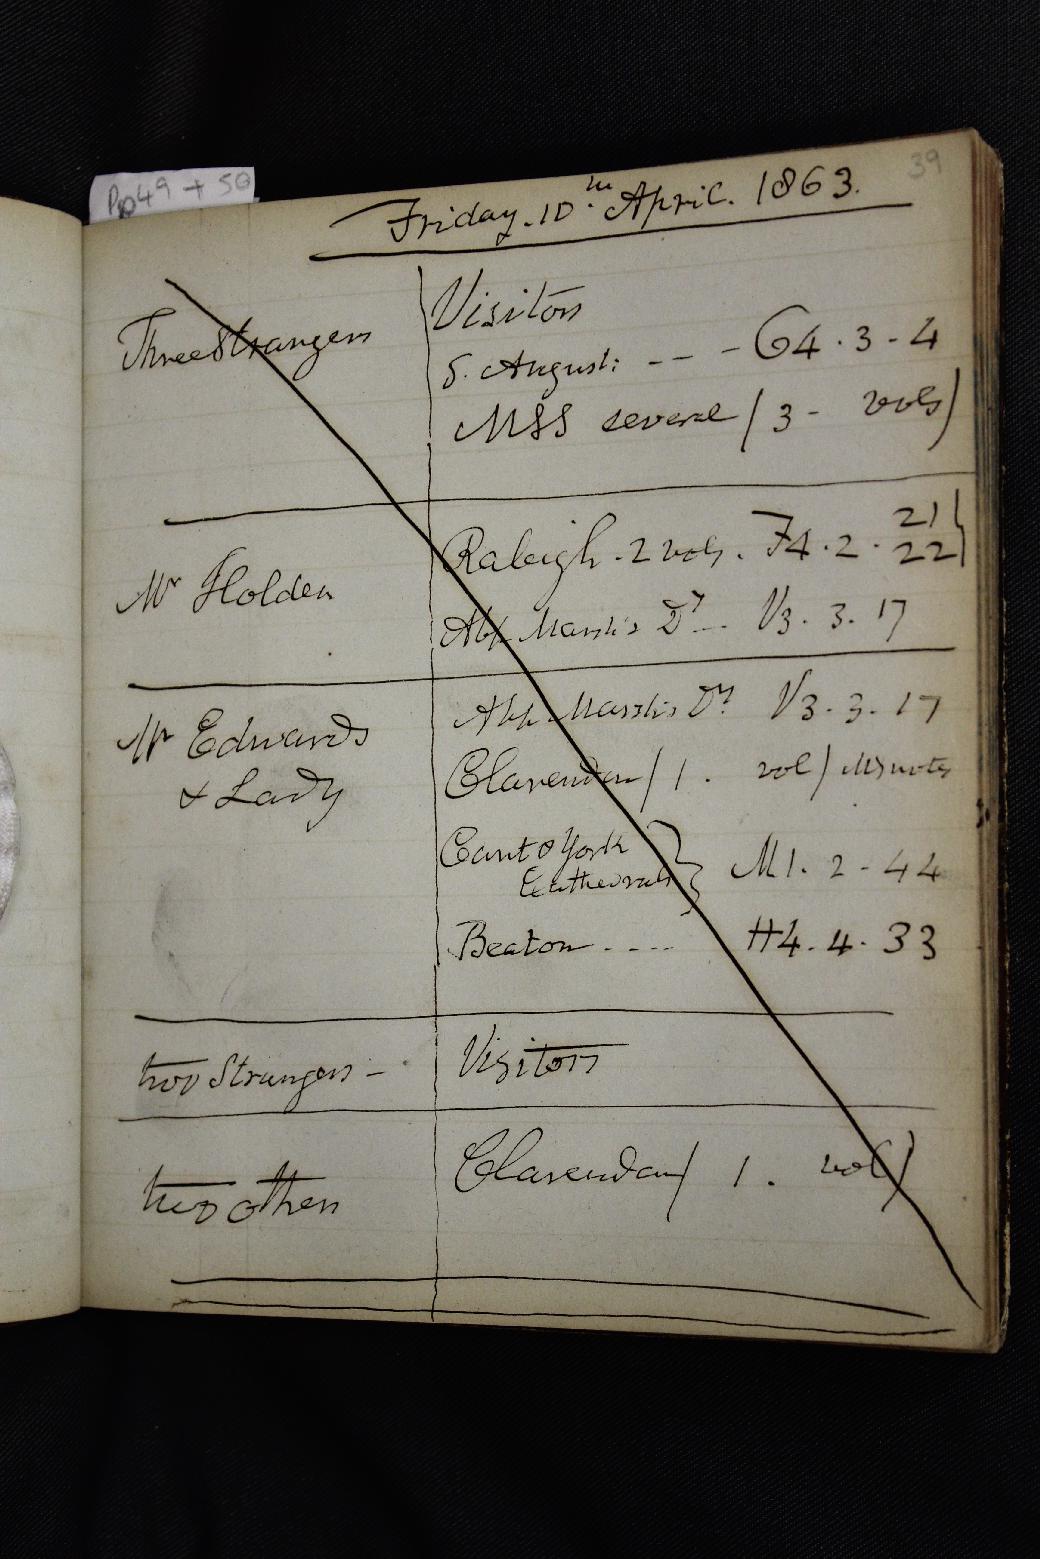 39
Pp 49 + 50
Friday. 10.th April. 1863.
Three Strangers
Visitors
S. August: - - - G4.3-4
MSS several / 3 - vols /
Mr Holden
Raleigh. 2 vols. F4.2. 21
22
Abp Marsh's Dy -- V3. 3. 17
Mr Edwards
& Lady
Abp. Marsh's Dy V3. 3. 17
Clarendon / 1. vol / MS notes
Cant & York
Cathedrals
M1. 2 - 44
Beaton - - - - H4. 4. 33
two Strangers -
Visitors
two others
Clarendon / 1. vol /